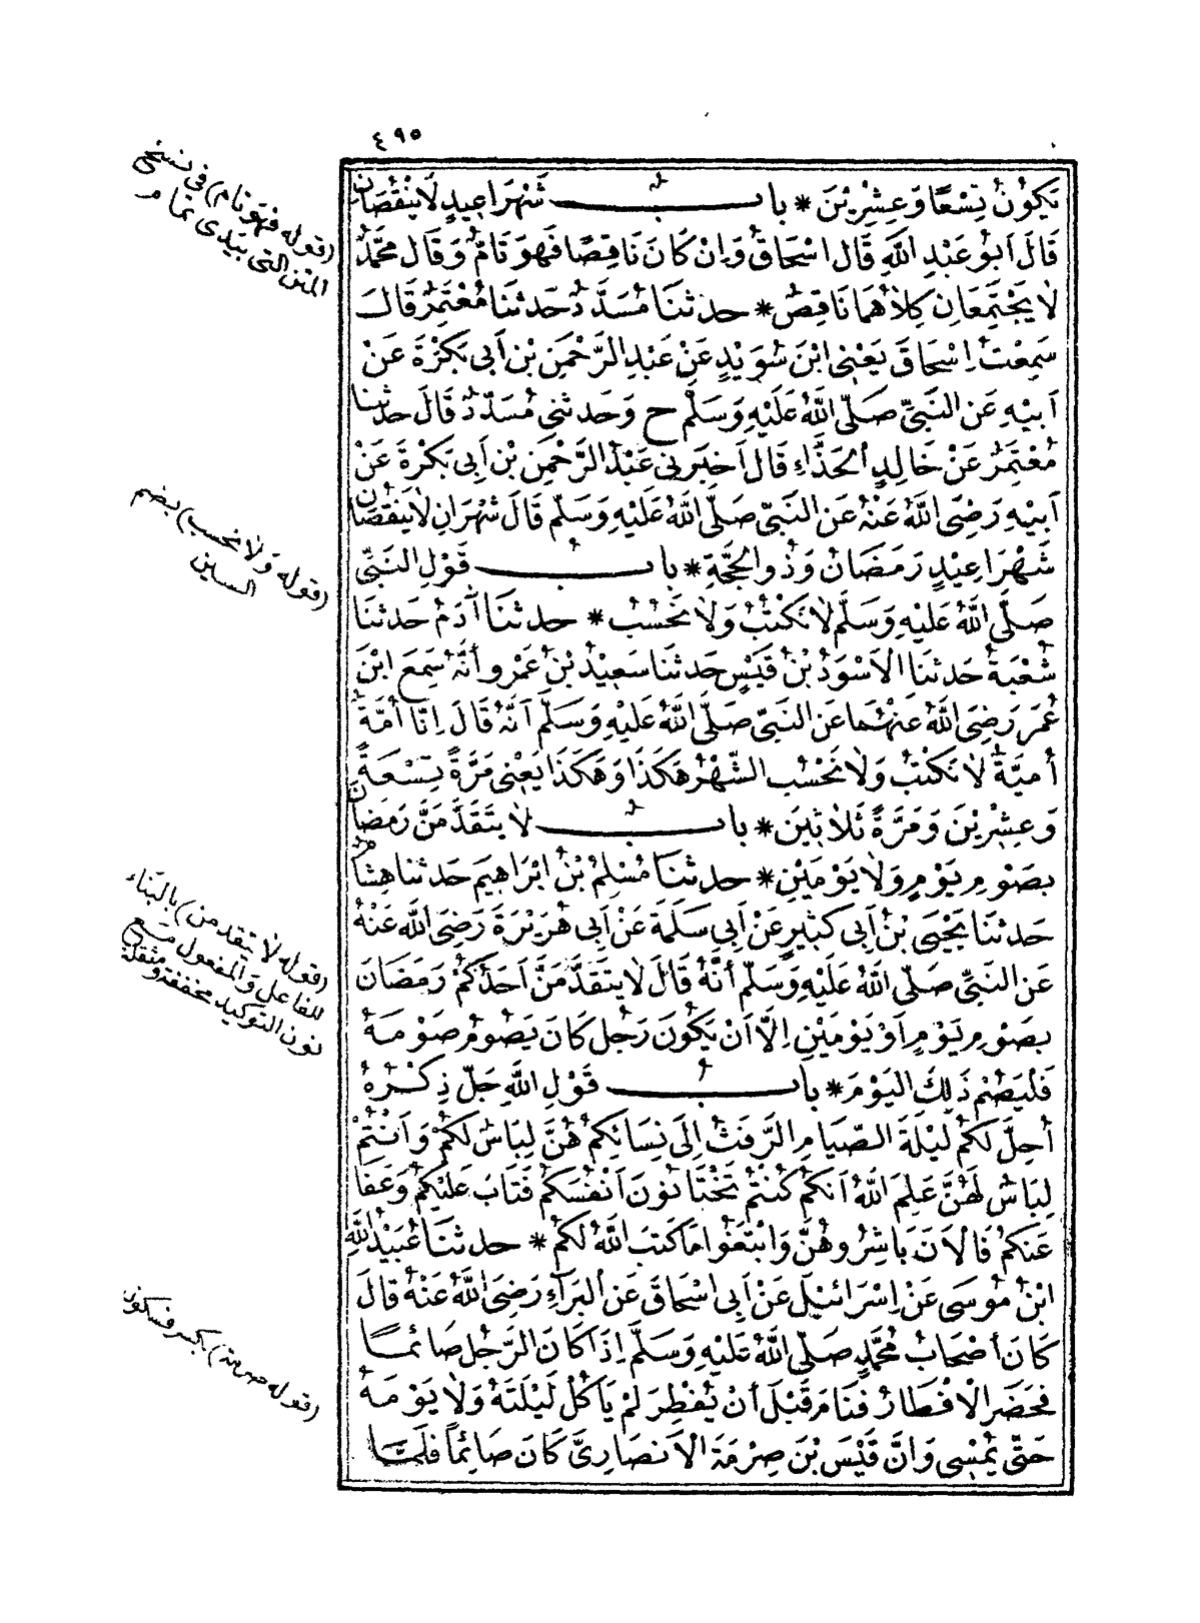 ٤٩٥
يَكُونُ تِسْعًا وَعِشْرِينَ * بابٌ شَهْرَا عِيدٍ لَا يَنْقُصَانِ
قَالَ اَبُو عَبْدِ اللَّهِ قَالَ اِسْحَاقُ وَاِنْ كَانَ نَاقِصًا فَهُوَ تَامٌّ وَقَالَ مُحَمَّدٌ
لَا يَجْتَمِعَانِ كِلَاهُمَا نَاقِصٌ * حدثنا مُسَدَّدٌ حَدثنا مُعْتَمِرٌ قَالَ
سَمِعْتُ اِسْحَاقَ يَعْنِي ابْنَ سُوَيْدٍ عَنْ عَبْدِ الرَّحْمٰنِ بْنِ اَبِي بَكْرَةَ عَنْ
اَبِيهِ عَنِ النَّبِيِّ صَلَّى اللَّهُ عَلَيْهِ وَسَلَّمَ ح وَحَدثني مُسَدَّدٌ قَالَ حَدثنا
مُعْتَمِرٌ عَنْ خَالِدٍ الْحَذَّاءِ قَالَ اَخْبَرَنِي عَبْدُ الرَّحْمٰنِ بْنُ اَبِي بَكْرَةَ عَنْ
اَبِيهِ رَضِيَ اللَّهُ عَنْهُ عَنِ النَّبِيِّ صَلَّى اللَّهُ عَلَيْهِ وَسَلَّمَ قَالَ شَهْرَانِ لَا يَنْقُصَانِ
شَهْرَا عِيدٍ رَمَضَانُ وَذُو الْحِجَّةِ * بابُ قَوْلِ النَّبِيِّ
صَلَّى اللَّهُ عَلَيْهِ وَسَلَّمَ لَا نَكْتُبُ وَلَا نَحْسُبُ * حدثنا آدَمُ حَدثنا
شُعْبَةُ حَدثنا الْاَسْوَدُ بْنُ قَيْسٍ حَدثنا سَعِيدُ بْنُ عَمْرٍو اَنَّهُ سَمِعَ ابْنَ
عُمَرَ رَضِيَ اللَّهُ عَنْهُمَا عَنِ النَّبِيِّ صَلَّى اللَّهُ عَلَيْهِ وَسَلَّمَ اَنَّهُ قَالَ اِنَّا اُمَّةٌ
اُمِّيَّةٌ لَا نَكْتُبُ وَلَا نَحْسُبُ الشَّهْرُ هَكَذَا وَهَكَذَا يَعْنِي مَرَّةً تِسْعَةً
وَعِشْرِينَ وَمَرَّةً ثَلَاثِينَ * بابٌ لَا يَتَقَدَّمَنَّ رَمَضَانَ
بِصَوْمِ يَوْمٍ وَلَا يَوْمَيْنِ * حدثنا مُسْلِمُ بْنُ اِبْرَاهِيمَ حَدثنا هِشَامٌ
حَدثنا يَحْيَى بْنُ اَبِي كَثِيرٍ عَنْ اَبِي سَلَمَةَ عَنْ اَبِي هُرَيْرَةَ رَضِيَ اللَّهُ عَنْهُ
عَنِ النَّبِيِّ صَلَّى اللَّهُ عَلَيْهِ وَسَلَّمَ اَنَّهُ قَالَ لَا يَتَقَدَّمَنَّ اَحَدُكُمْ رَمَضَانَ
بِصَوْمِ يَوْمٍ اَوْ يَوْمَيْنِ اِلَّا اَنْ يَكُونَ رَجُلٌ كَانَ يَصُومُ صَوْمَهُ
فَلْيَصُمْ ذَلِكَ الْيَوْمَ * بابُ قَوْلِ اللَّهِ جَلَّ ذِكْرُهُ
اُحِلَّ لَكُمْ لَيْلَةَ الصِّيَامِ الرَّفَثُ اِلَى نِسَائِكُمْ هُنَّ لِبَاسٌ لَكُمْ وَاَنْتُمْ
لِبَاسٌ لَهُنَّ عَلِمَ اللَّهُ اَنَّكُمْ كُنْتُمْ تَخْتَانُونَ اَنْفُسَكُمْ فَتَابَ عَلَيْكُمْ وَعَفَا
عَنْكُمْ فَالْآنَ بَاشِرُوهُنَّ وَابْتَغُوا مَا كَتَبَ اللَّهُ لَكُمْ * حدثنا عُبَيْدُ اللَّهِ
ابْنُ مُوسَى عَنْ اِسْرَائِيلَ عَنْ اَبِي اِسْحَاقَ عَنِ الْبَرَاءِ رَضِيَ اللَّهُ عَنْهُ قَالَ
كَانَ اَصْحَابُ مُحَمَّدٍ صَلَّى اللَّهُ عَلَيْهِ وَسَلَّمَ اِذَا كَانَ الرَّجُلُ صَائِمًا
فَحَضَرَ الْاِفْطَارُ فَنَامَ قَبْلَ اَنْ يُفْطِرَ لَمْ يَأْكُلْ لَيْلَتَهُ وَلَا يَوْمَهُ
حَتَّى يُمْسِيَ وَاِنَّ قَيْسَ بْنَ صِرْمَةَ الْاَنْصَارِيَّ كَانَ صَائِمًا فَلَمَّا
(قوله فهو تام) في نسخ
المتن التي بيدى تمام
(قوله ولا نحسب) بضم
السين
(قوله لا يتقدمن) بالبناء
للفاعل والمفعول مع
نون التوكيد مخففة ومثقلة
(قوله صرمة) بكسر فسكون